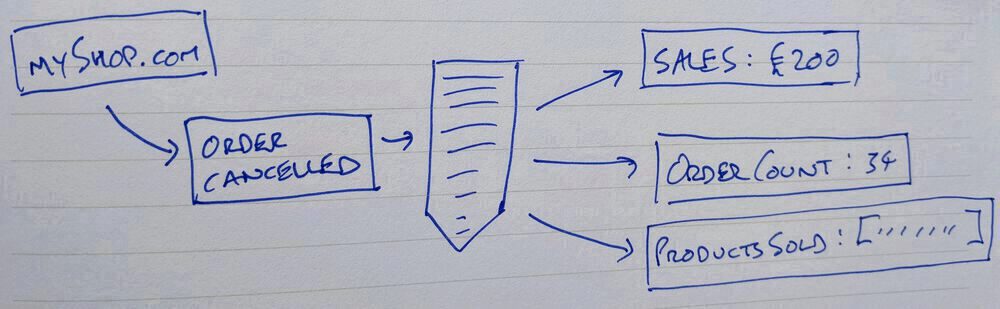 MYSHOP.COM
ORDER
CANCELLED
SALES: £200
ORDERCOUNT: 34
PRODUCTSSOLD: ["",","]